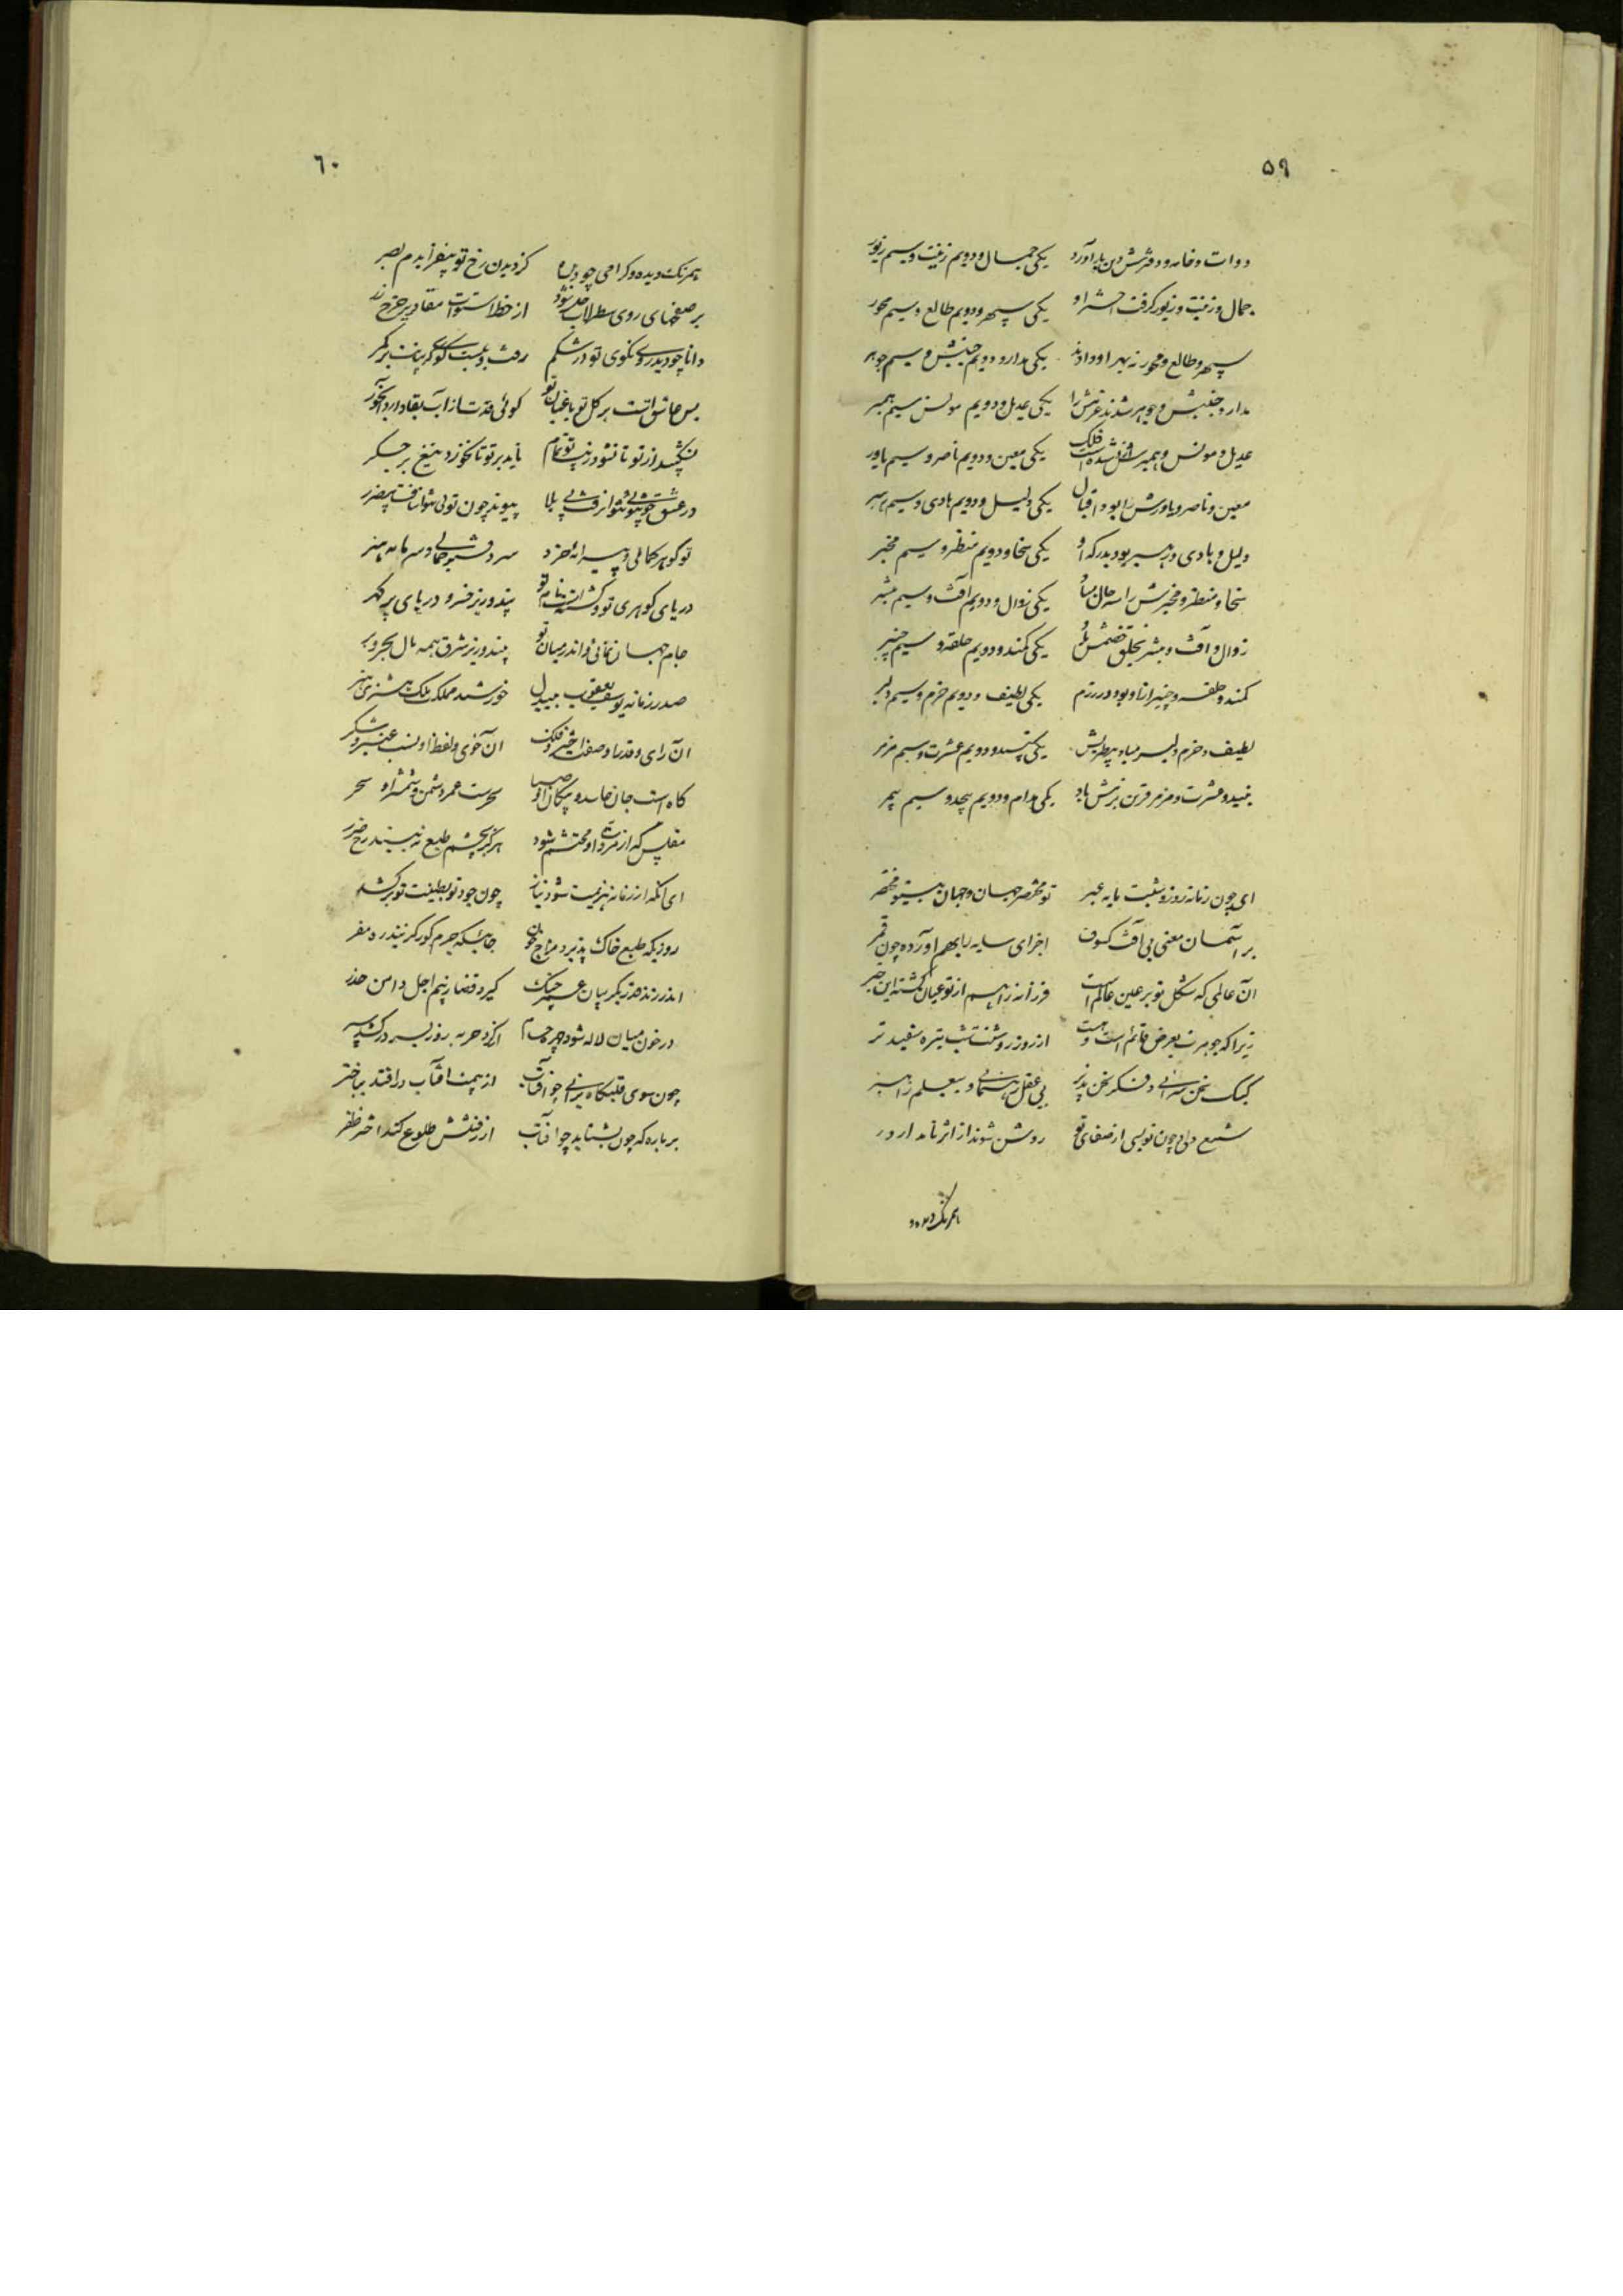 ۵۹
دوات و خامه و دفترش دین بار آورد یکی جمال و دویم زینت و سیم زیور
جمال و زینت و زیور گرفت اختر او یکی سپهر و دویم طالع و سیم محور
سپهر و طالع و محور نه بهر او دادند یکی مدار و دویم جنبش و سیم جوهر
مدار و جنبش و جوهر شدند عزتش را یکی عدیل و دویم مونس سیم همبر
عدیل و مونس و همبر فلک یکی معین و دویم ناصر و سیم یاور
معین و ناصر و یاورش را بود اقبال یکی دلیل و دویم هادی و سیم رهبر
دلیل و هادی و رهبر بود بدرگه او یکی سخا و دویم منظر و سیم مخبر
سخا و منظر و مخبرش راسه حال یکی زوال و دویم آفت و سیم
زوال و آفت و بخلق خصمش یکی کمند و دویم حلقه و سیم چنبر
کمند و حلقه و چنبر او بود در رزم یکی لطیف و دویم خرم و سیم دلبر
لطیف و خرم و دلبر میاه یکی و دویم عشرت و سیم مزمر
نبید و عشرت و مزمر قرین بزمش باد یکی مدام و دویم بیحد و سیم بیمر
ای چون زمانه روز و شبت مایه عبر تو مختصر جهان و جهان بیتو مختصر
بر آسمان معنی بی آفت کسوف اجزای سایه را بهم آورده چون قمر
آن عالمی که شکل تو بر عین عالم است فرزانه را هم از تو عیان گشته این خبر
زیرا که جوهرت بعرض قائم است از روز روشنت شب تیره سفید تر
کلک سخن سرائی و فکر سخن پذیر بی عقل رهنمائی و بیعلم راهبر
شمع دلی چون نویسی از صفای تو روشن شوند از اثر نامدار و در
همرنگ دیده و
۶۰
همرنگ دیده و گرامی چو دیده کز دیدن رخ تو بیفزایدم بصر
بر صفحهای روی سطرلاب از خط استوات مقادیر خیر
دانا چو دید روی نکوی تو در شکم بر کمر
بس عاشق است بر گل تو باغبان تو گوئی قدت از آب بقا دارد آبخور
از تو تا نشود زیب تو تمام ناید بر تو تا نخورد تیغ بر جگر
در عشق چو توئی نتوان رفت بی بلا پیوند چون توئی نتوان یافت بیضرر
تو گوهر کمالی و پیرایهٔ خرد سر دفتر جمالی و سرمایه هنر
دریای گوهری تو و بیند و ریز خسرو دریای پر گهر
جام جهان نمائی و اندر میان تو بیند وزیر شرق همه مال بحر و بر
صدر زمانه یوسف یعقوب بیبدل خورشید مملکت ملک مشتری نظر
آن رای و قدر با و صفت اختر و فلک آن خوی و لفظ او نسب عنبر و شکر
کاه است جان حاسد و پیکان او صبا سحرست عمر دشمن و شمشیر او سحر
مفلس که از او محتشم شود هرگز بچشم طبع نه بیند رخ ضرر
ای آنکه از زمانه هزیمت شود نیاز چون جود تو بطینت تو بر کشد
روزیکه طبع خاک پذیرد مزاج خون جائیکه جرم کوه گزیند ره مفر
اندر زند هنر بگریبان عمر چنگ گیرد قضا ز بیم اجل دامن حذر
در خون میان لاله شود چهر حسام از گرد حربه روز بسر درکشد سپر
چون سوی قلبگاه برانی چو آفتاب از هیبت آفتاب در افتد بباختر
بر باره که چون بشتابد چو آفتاب از رفتنش طلوع کند اختر ظفر